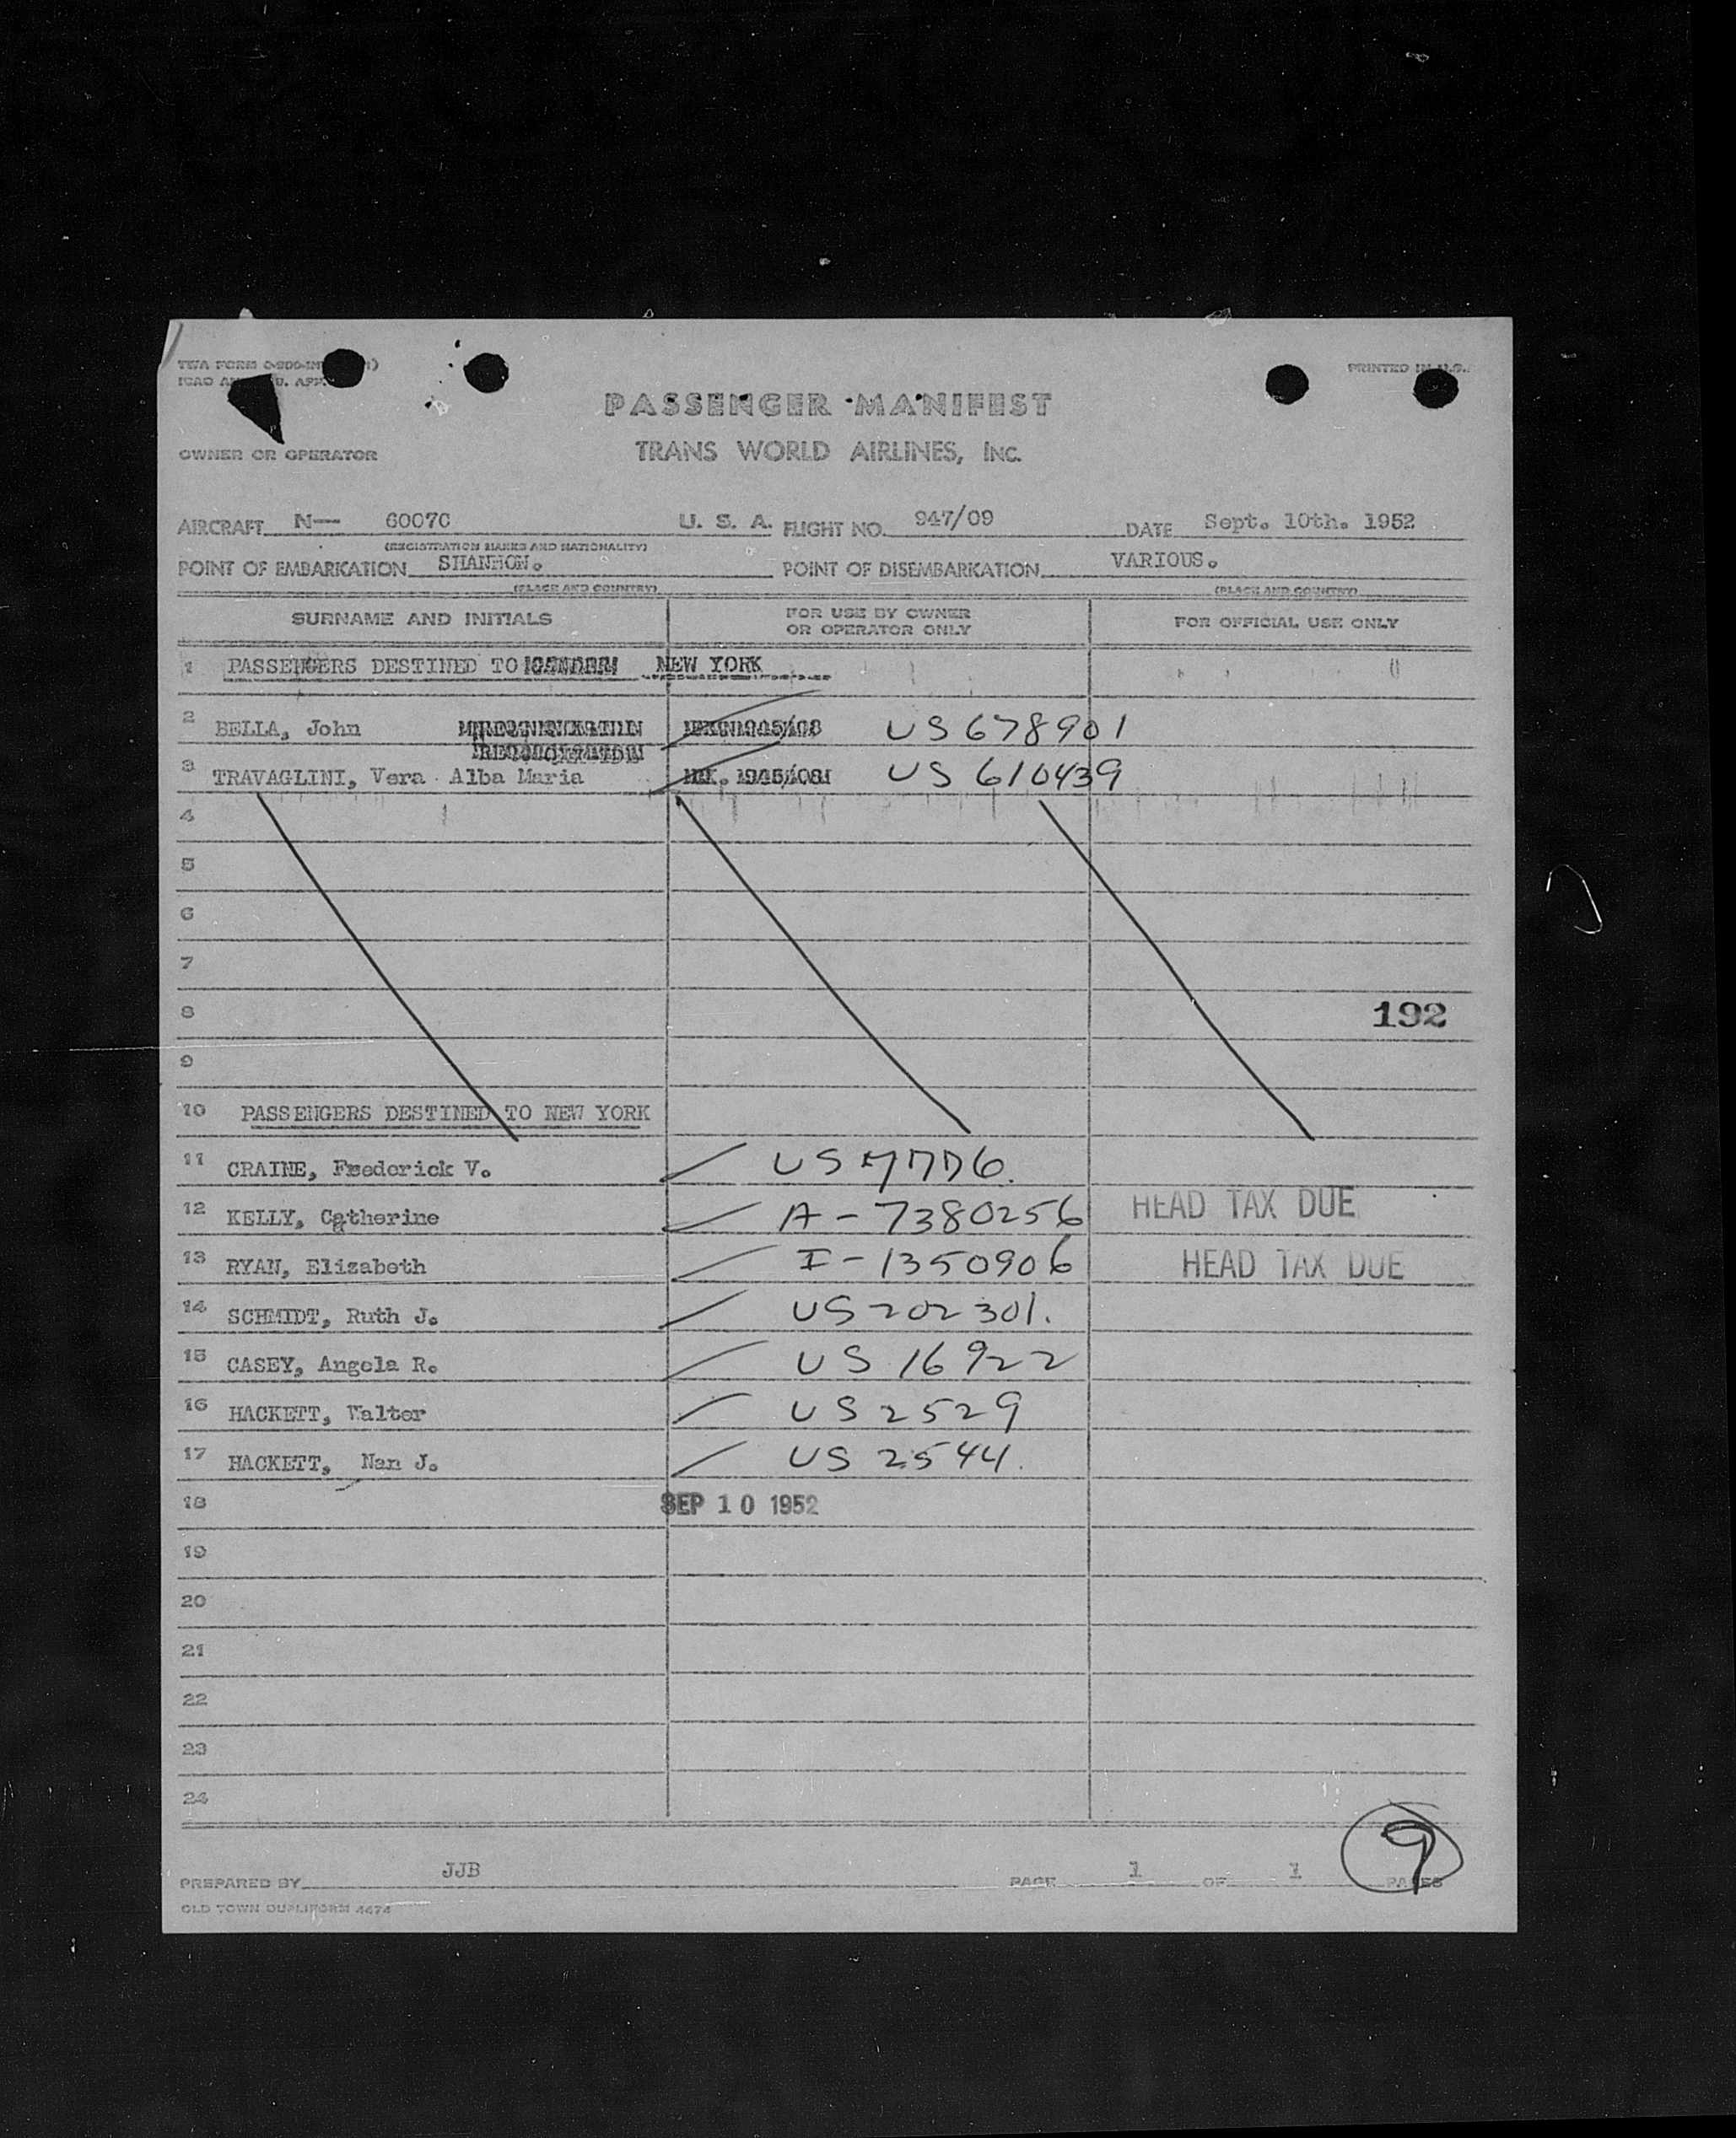 PRINTED IN U.S.
PASSENGER MANIFEST
OWNER OR OPERATOR
TRANS WORLD AIRLINES, INC.
AIRCRAFT N— 6007C U. S. A. FLIGHT NO. 947/09 DATE Sept. 10th. 1952
(REGISTRATION MARKS AND NATIONALITY)
POINT OF EMBARKATION SHANNON. POINT OF DISEMBARKATION VARIOUS.
(PLACE AND COUNTRY) (PLACE AND COUNTRY)
SURNAME AND INITIALS FOR USE BY OWNER OR OPERATOR ONLY FOR OFFICIAL USE ONLY
1 PASSENGERS DESTINED TO NEW YORK
2 BELLA, John US 678901
3 TRAVAGLINI, Vera Alba Maria US 610439
4
5
6
7
8 192
9
10 PASSENGERS DESTINED TO NEW YORK
11 CRAINE, Frederick V. US
12 KELLY, Catherine A-7380256 HEAD TAX DUE
13 RYAN, Elizabeth I-1350906 HEAD TAX DUE
14 SCHMIDT, Ruth J. US 202301.
15 CASEY, Angela R. US 16922
16 HACKETT, Walter US 2529
17 HACKETT, Nan J. US 2544.
18 SEP 10 1952
19
20
21
22
23
24
9
PREPARED BY JJB PAGE 1 OF 1 PAGES
OLD TOWN DUPLIFORM 4474